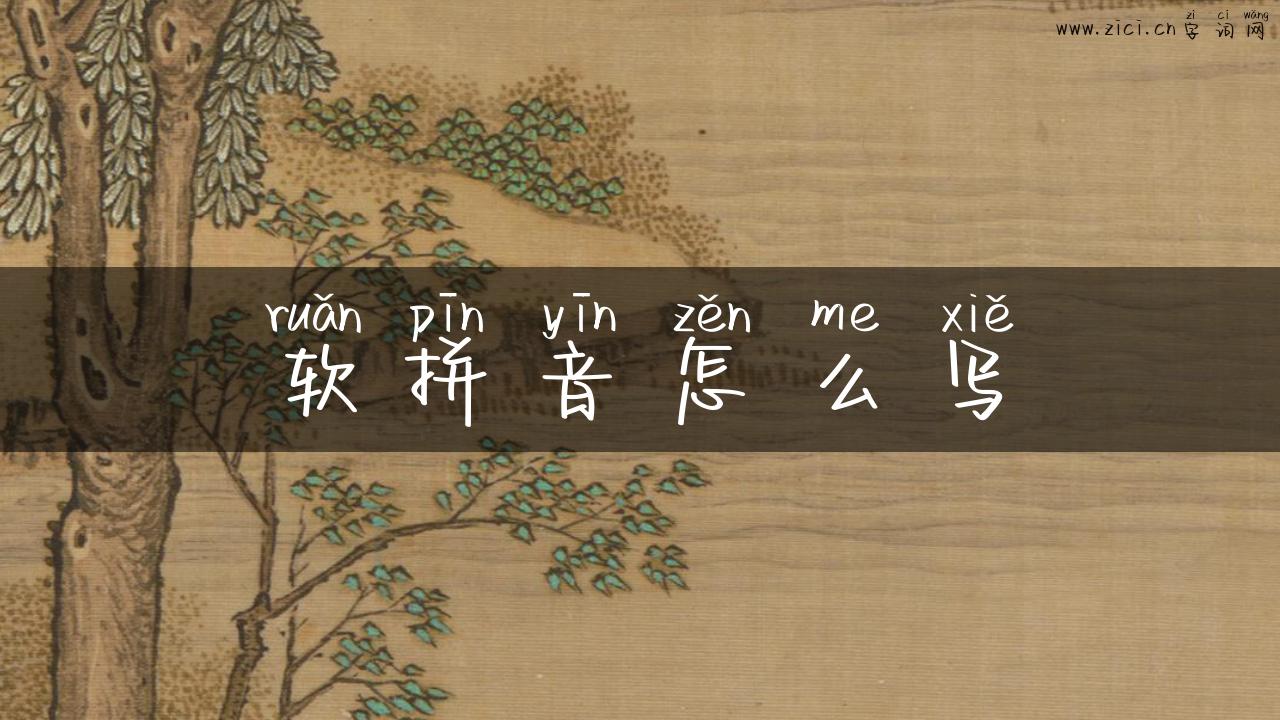 zì cí wǎng
www.zici.cn 字词网
ruǎn pīn yīn zěn me xiě
软拼音怎么写